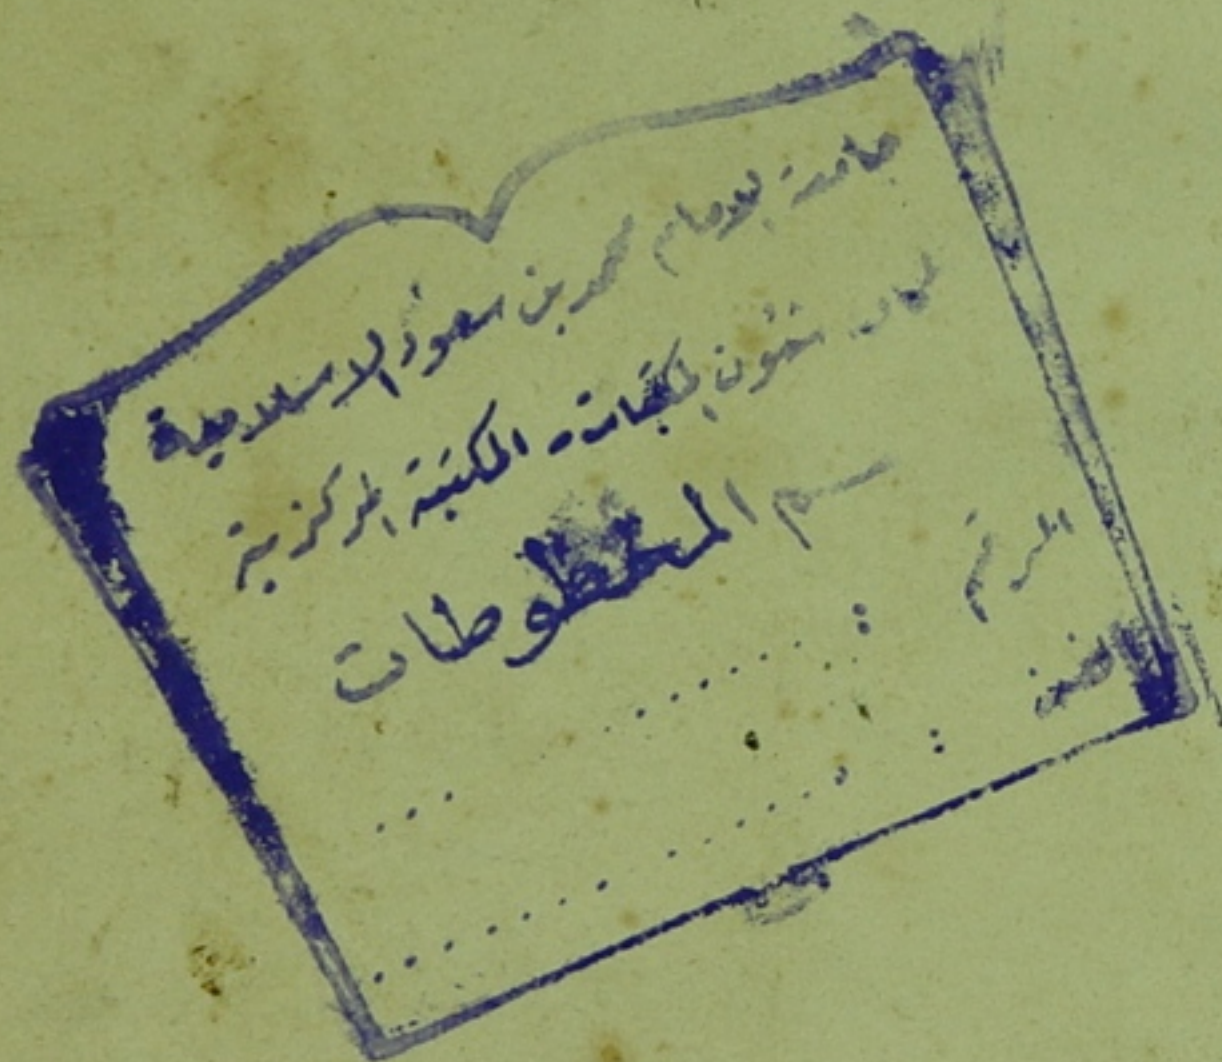 جامعة الامام محمد بن سعود الاسلامية
عمادة شئون المكتبات - المكتبة المركزية
قسم المخطوطات
الرقم : ..................
: ..................